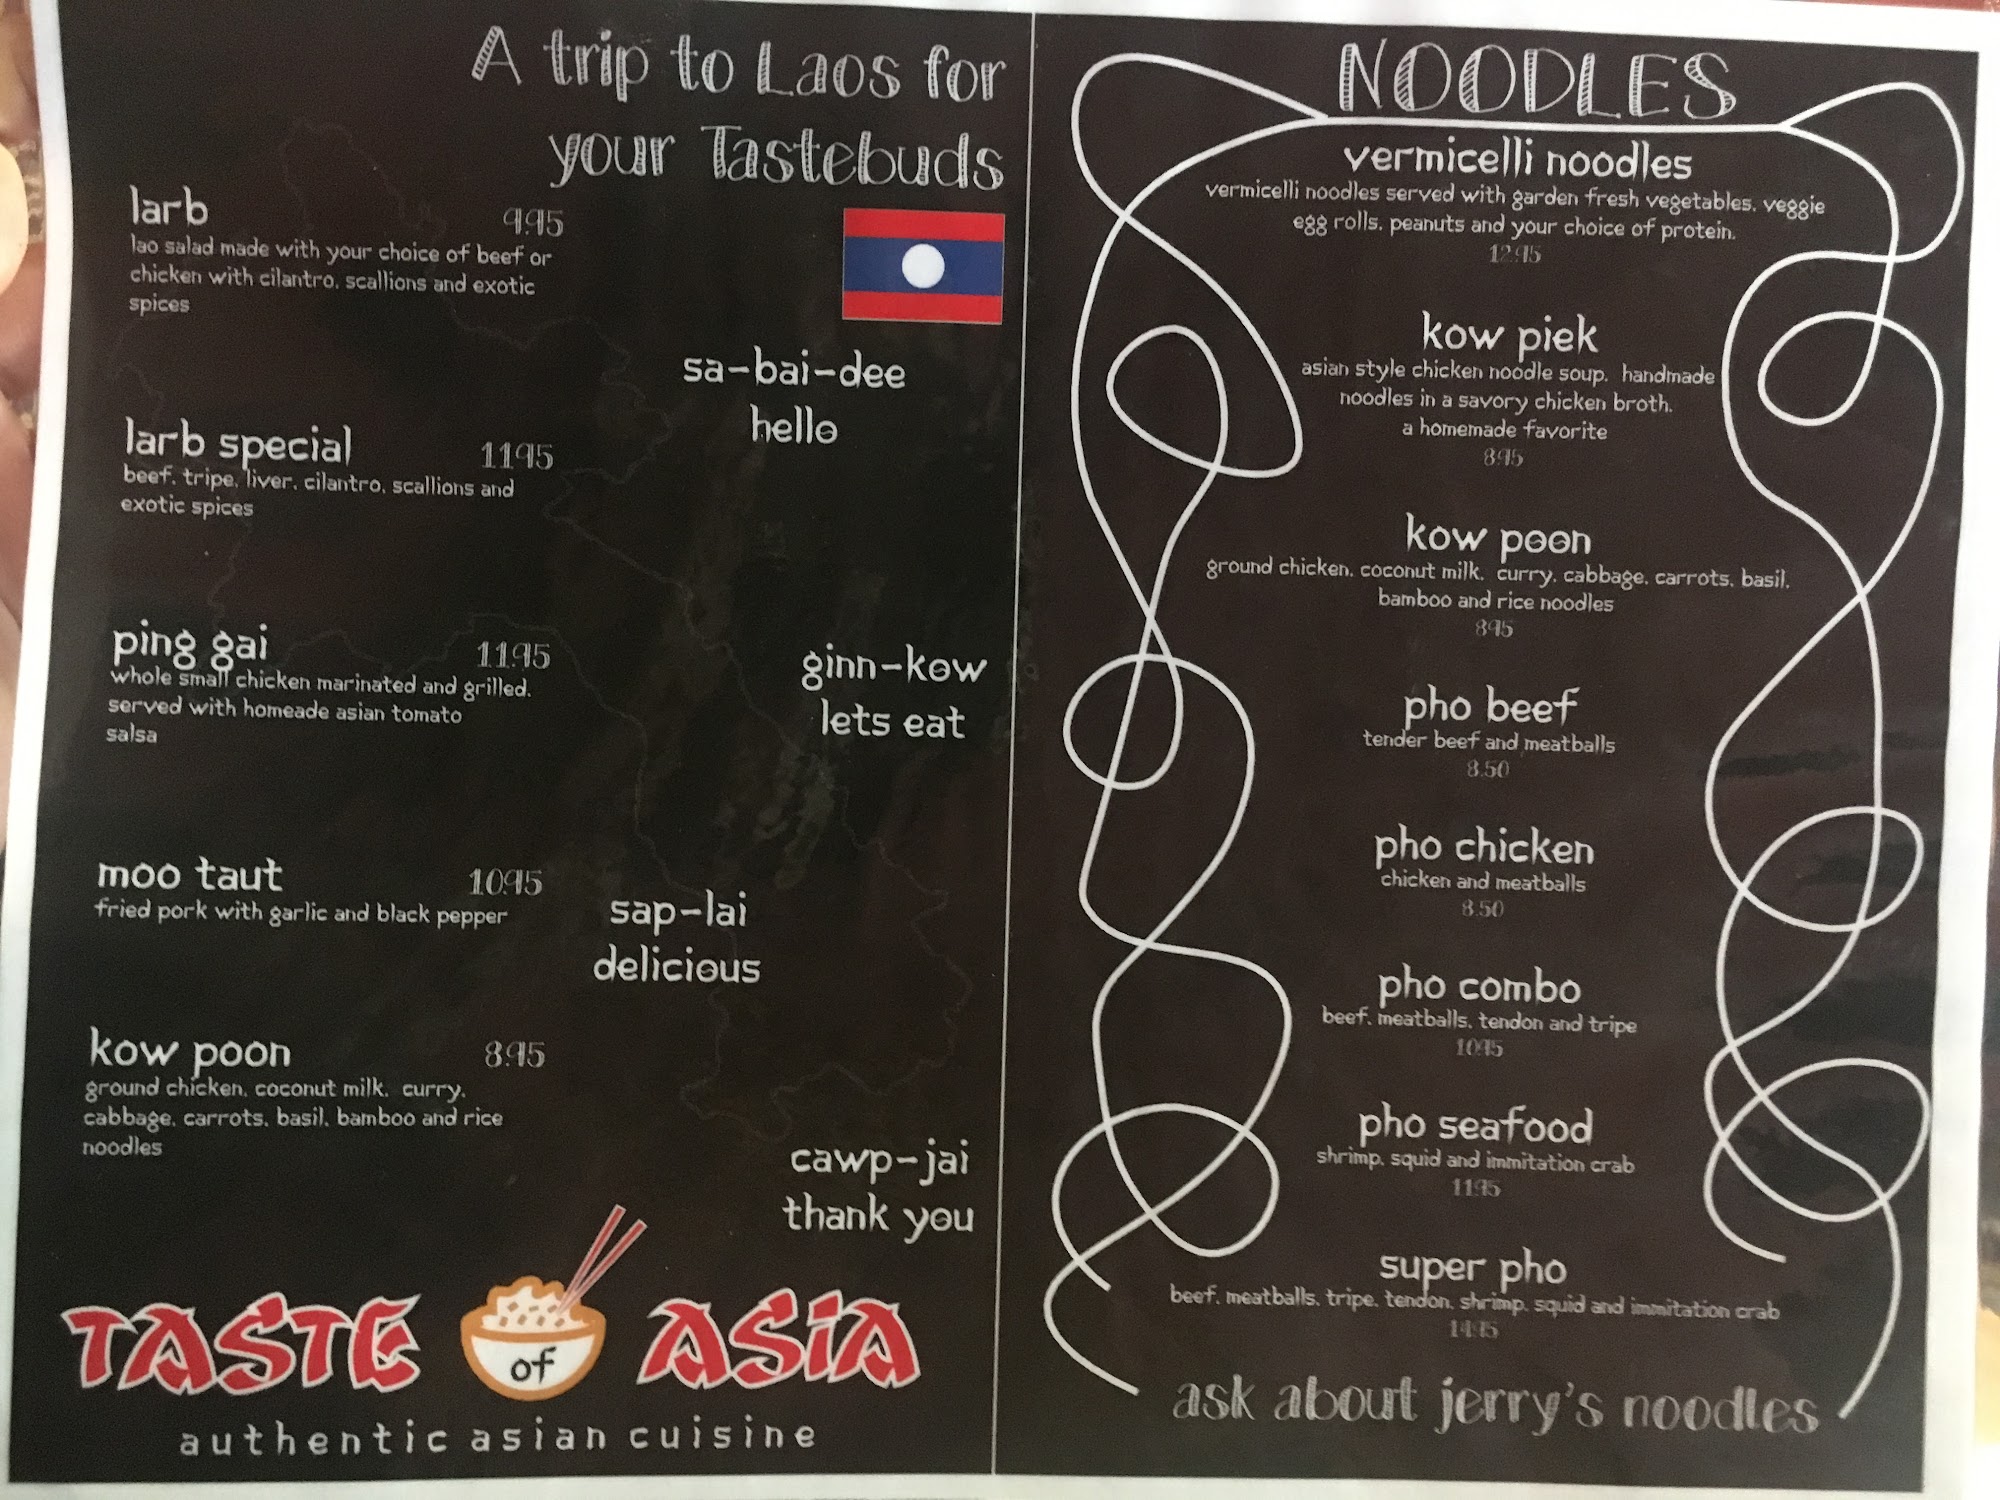 A trip to Laos for
your Tastebuds
larb 9.95
lao salad made with your choice of beef or
chicken with cilantro, scallions and exotic
spices
sa-bai-dee
hello
larb special 11.95
beef, tripe, liver, cilantro, scallions and
exotic spices
ping gai 11.95
whole small chicken marinated and grilled.
served with homeade asian tomato
salsa
ginn-kow
lets eat
moo taut 10.95
fried pork with garlic and black pepper
sap-lai
delicious
kow poon 8.95
ground chicken, coconut milk, curry,
cabbage, carrots, basil, bamboo and rice
noodles
cawp-jai
thank you
TASTE of ASIA
authentic asian cuisine
NOODLES
vermicelli noodles
vermicelli noodles served with garden fresh vegetables, veggie
egg rolls, peanuts and your choice of protein.
12.95
kow piek
asian style chicken noodle soup. handmade
noodles in a savory chicken broth.
a homemade favorite
8.95
kow poon
ground chicken, coconut milk, curry, cabbage, carrots, basil,
bamboo and rice noodles
8.95
pho beef
tender beef and meatballs
8.50
pho chicken
chicken and meatballs
8.50
pho combo
beef, meatballs, tendon and tripe
10.95
pho seafood
shrimp, squid and immitation crab
11.95
super pho
beef, meatballs, tripe, tendon, shrimp, squid and immitation crab
14.95
ask about jerry's noodles